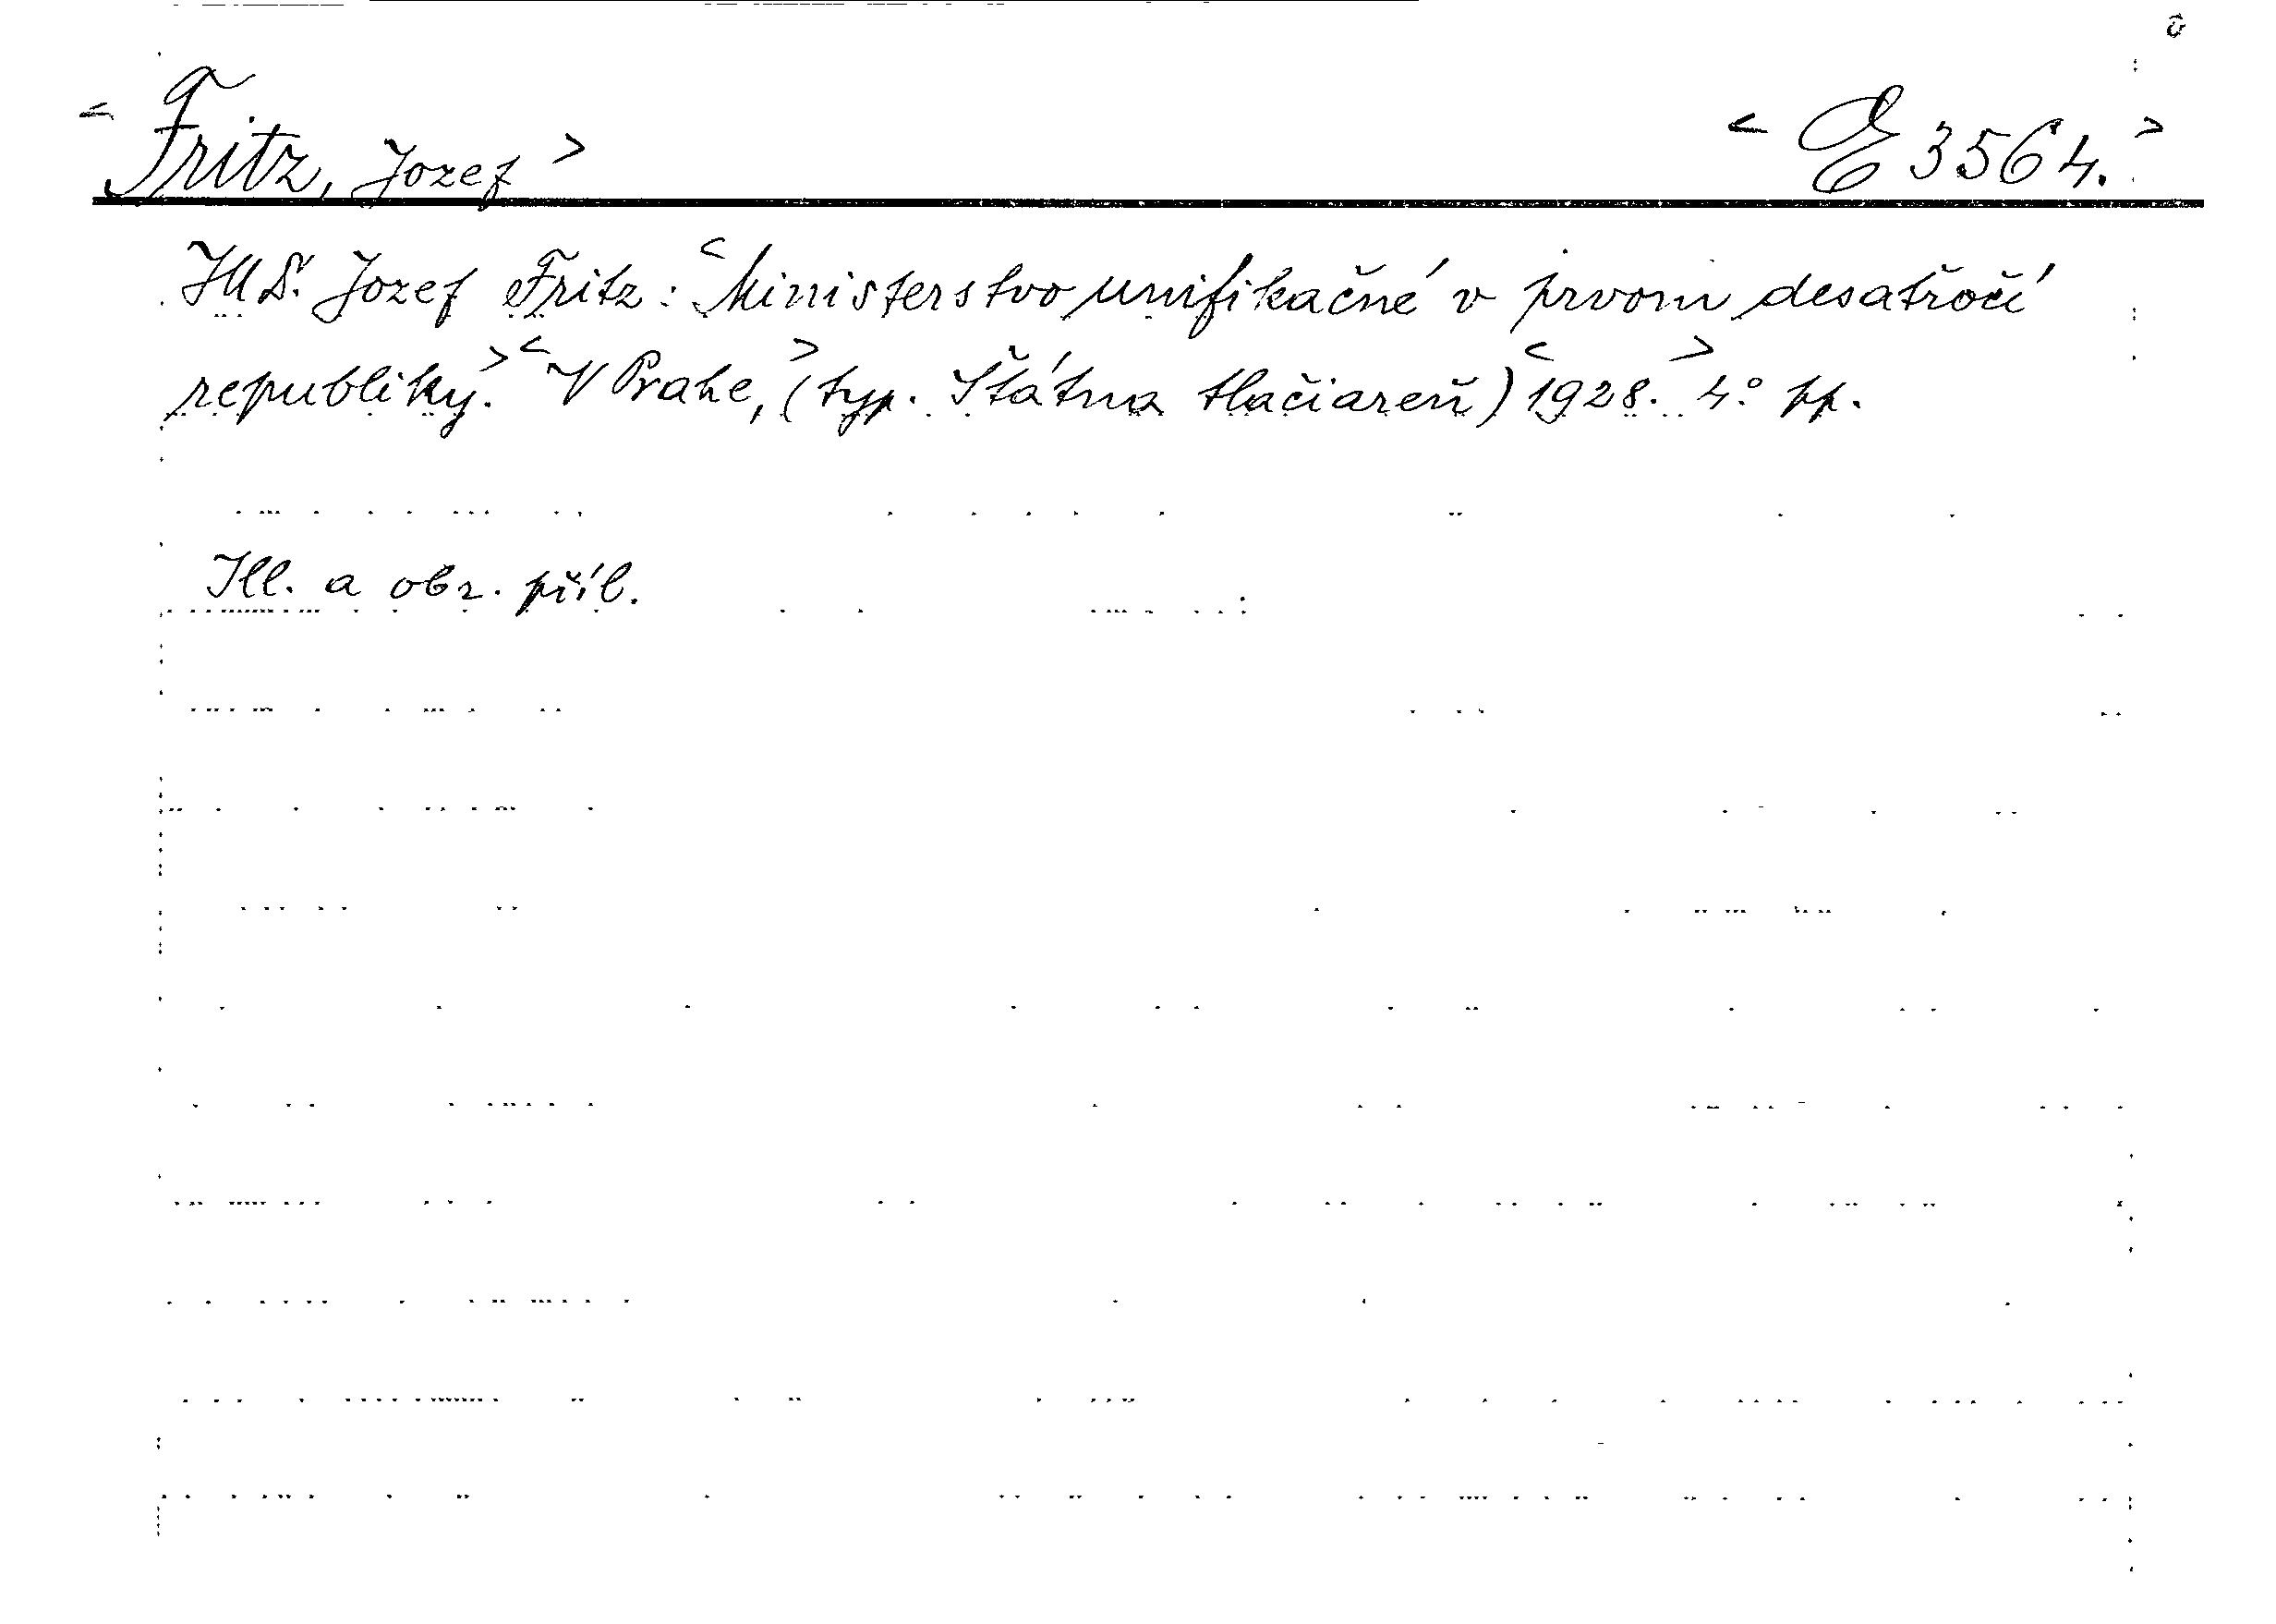 < Fritz, Jozef > < E 3564. >
JUDr. Jozef Fritz: <Ministerstvo unifikačné v prvom desaťročí
republiky.> <V Prahe,> (typ. Štátna tlačiareň) <1928.> 4° pp.
Ill. a obr. příl.